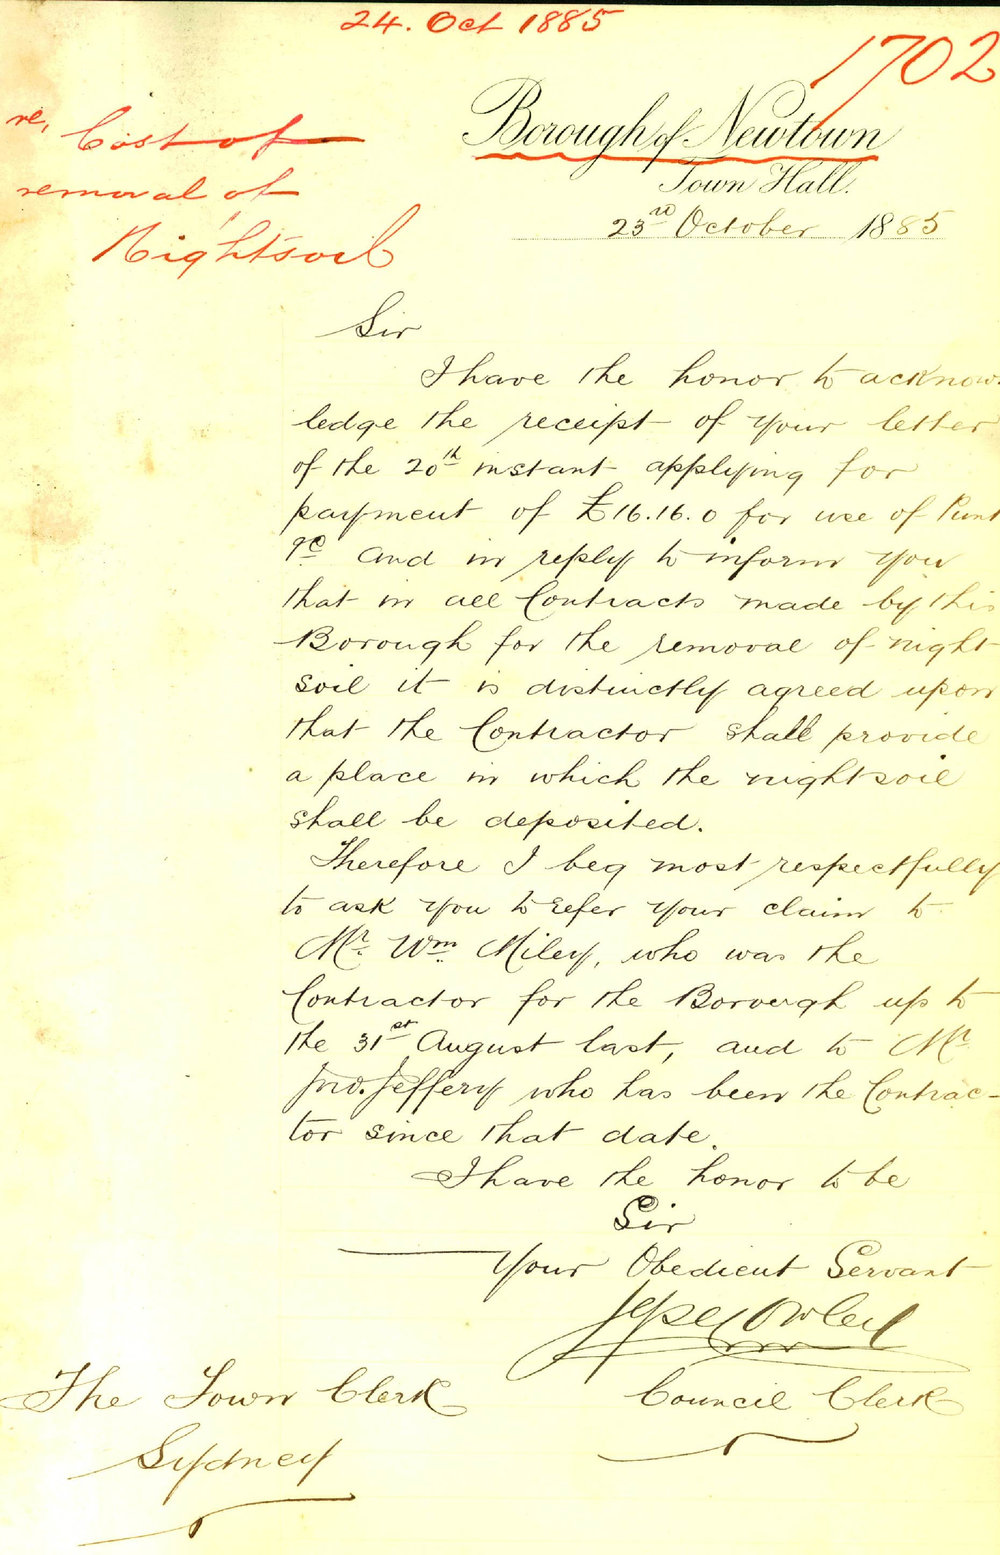 24. Oct 1885
1702
re, Cost of
removal of
Nightsoil
Borough of Newtown
Town Hall.
23rd October 1885
Sir
I have the honor to acknow-
ledge the receipt of your letter
of the 20th instant applying for
payment of £16.16.0 for use of Punt
&c and in reply to inform you
that in all Contracts made by this
Borough for the removal of night
soil it is distinctly agreed upon
that the Contractor shall provide
a place in which the nightsoil
shall be deposited.
Therefore I beg most respectfully
to ask you to refer your claim to
Mr. Wm. Miley, who was the
Contractor for the Borough up to
the 31st August last, and to Mr.
Jno. Jeffery who has been the Contrac-
tor since that date.
I have the honor to be
Sir
Your Obedient Servant
Council Clerk
The Town Clerk
Sydney